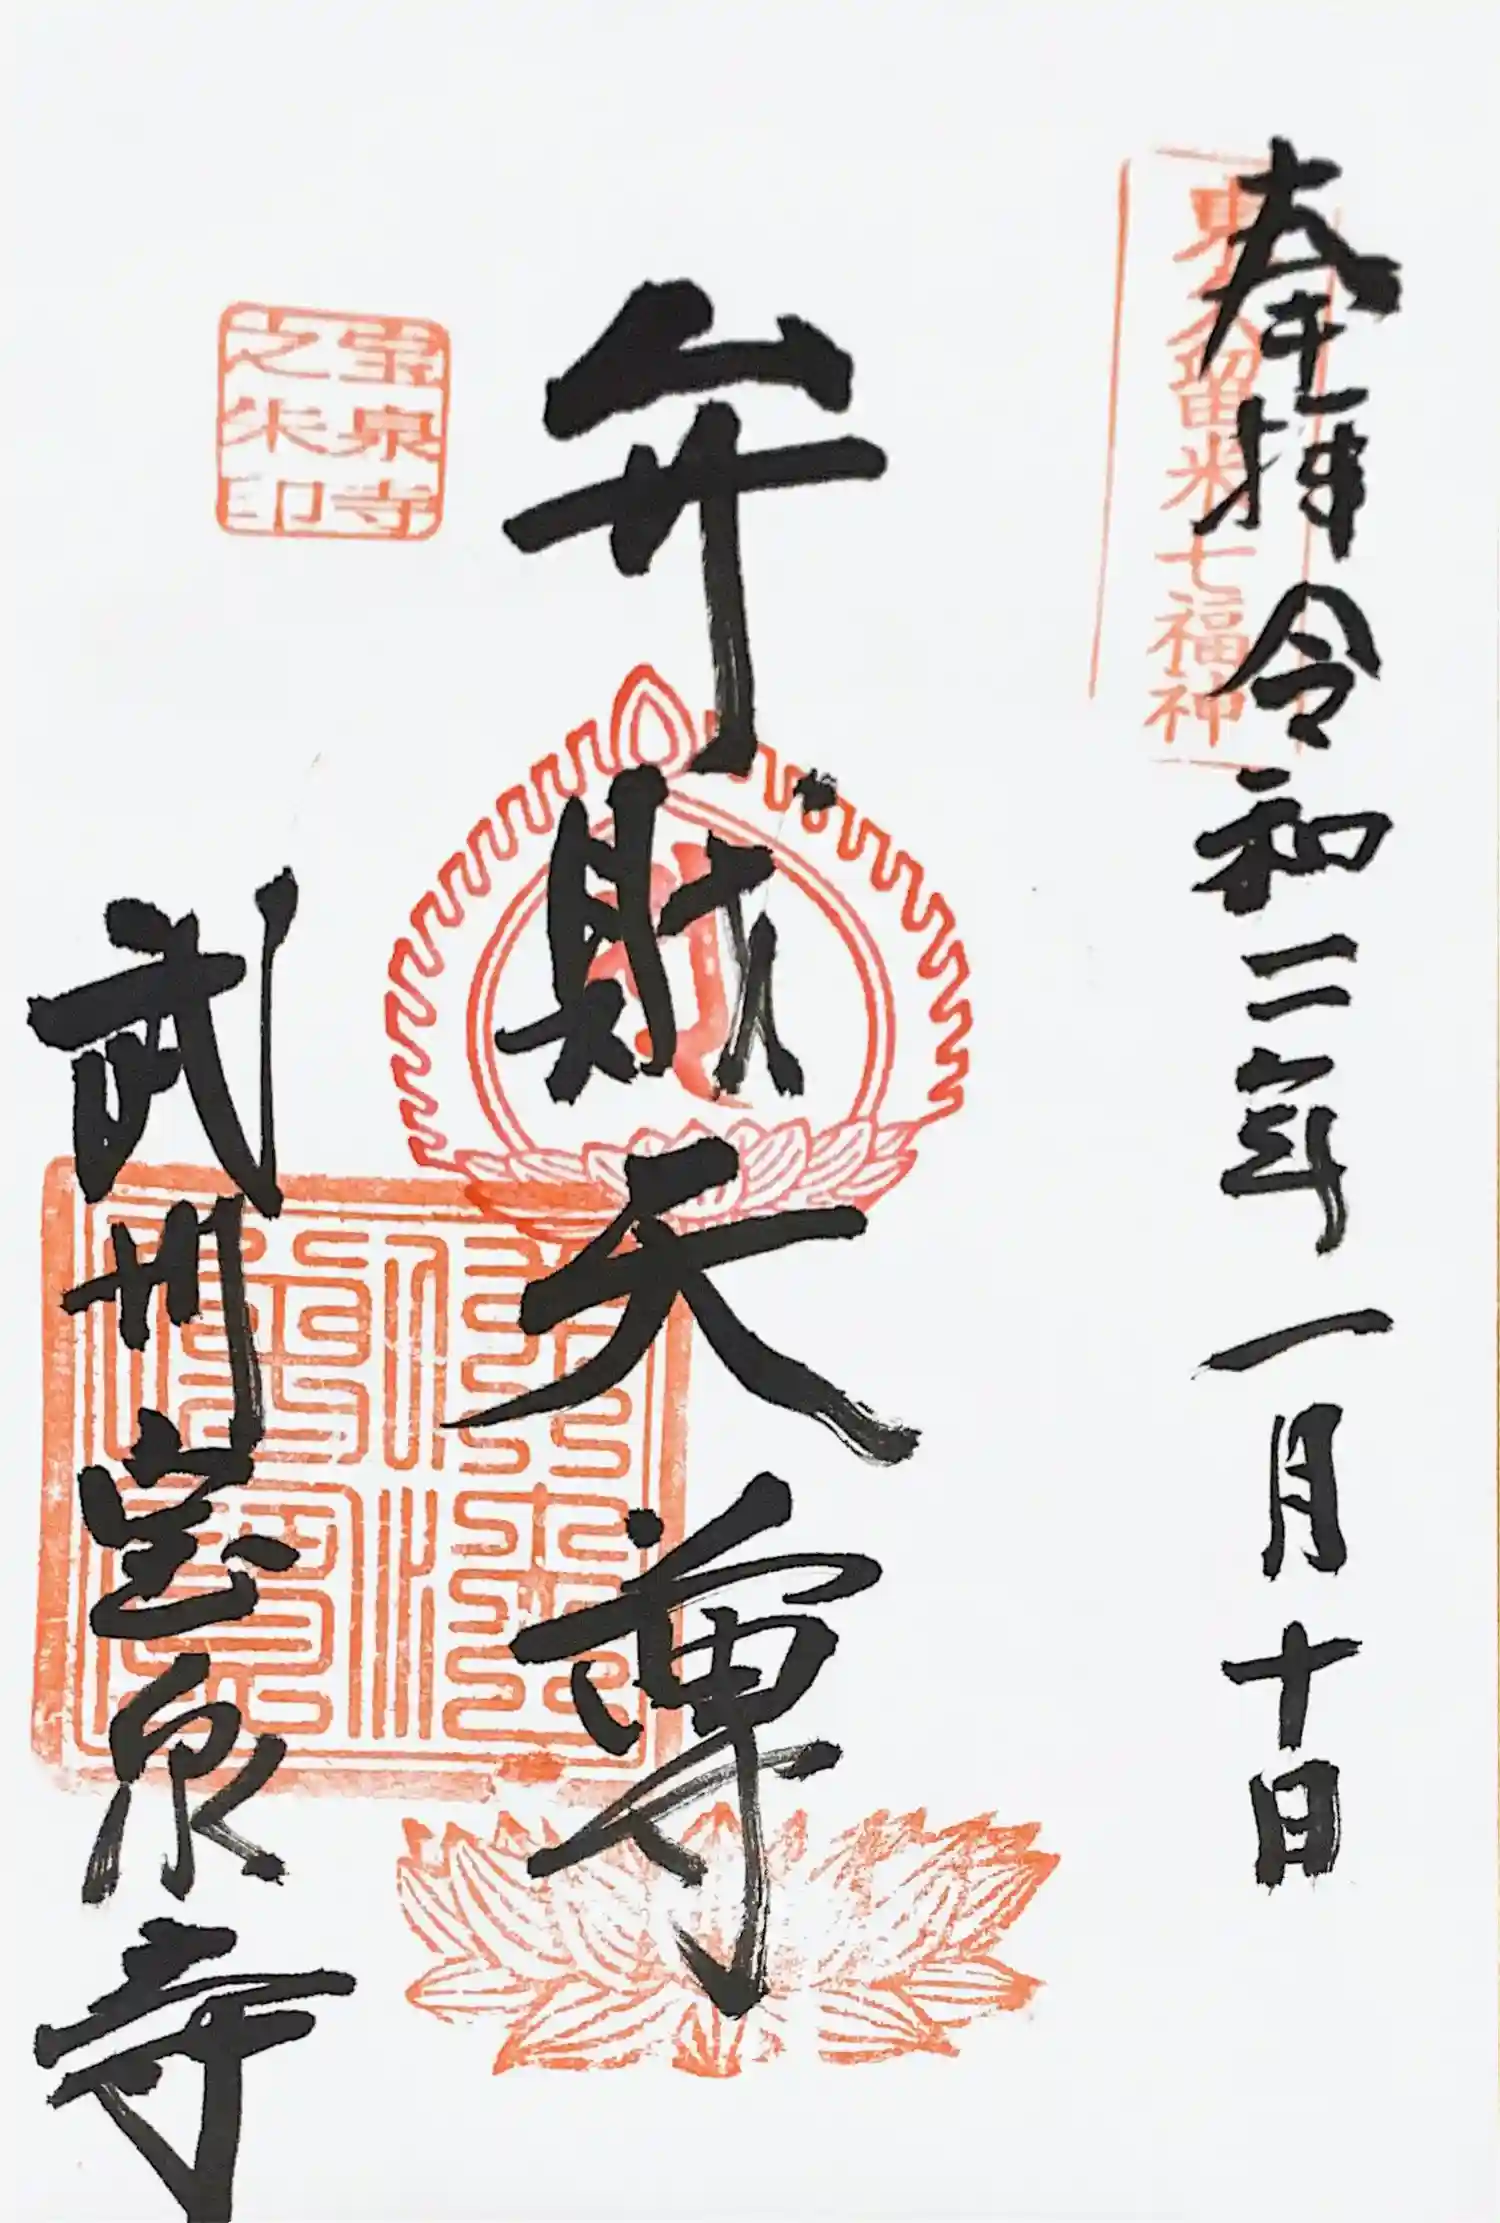 奉拝 令和二年一月十日
東久留米七福神
弁財天尊
宝泉寺
之朱印
武州宝泉寺